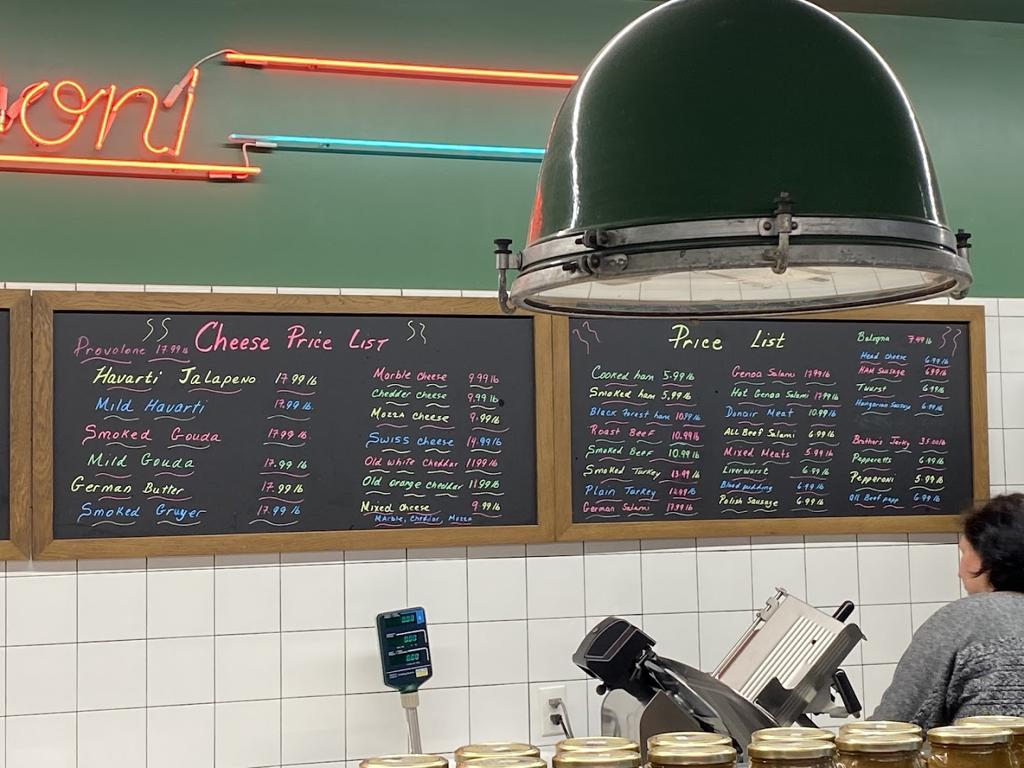 oni
Cheese Price List
Provolone 17.99 lb
Havarti Jalapeno 17.99 lb
Mild Havarti 17.99 lb
Smoked Gouda 17.99 lb
Mild Gouda 17.99 lb
German Butter 17.99 lb
Smoked Gruyer 17.99 lb
Marble cheese 9.99 lb
Chedder cheese 9.99 lb
Mozza cheese 9.99 lb
Swiss cheese 14.99 lb
Old white Cheddar 11.99 lb
Old orange cheddar 11.99 lb
Mixed Cheese 9.99 lb
Marble, Cheddar, Mozza
Price List
Cooked ham 5.99 lb
Smoked ham 5.99 lb
Black Forest ham 10.99 lb
Roast Beef 10.99 lb
Smoked Beef 10.99 lb
Smoked Turkey 13.99 lb
Plain Turkey 12.99 lb
German Salami 17.99 lb
Genoa Salami 17.99 lb
Hot Genoa Salami 17.99 lb
Donair Meat 10.99 lb
All Beef Salami 6.99 lb
Mixed Meats 5.99 lb
Liverwurst 6.99 lb
Blood pudding 6.99 lb
Polish Sausage 6.99 lb
Bologna 7.49 lb
Head cheese 6.99 lb
HAM Sausage 6.99 lb
6.99 lb
Hungarian Sausage 6.99 lb
Brothers Jerky 35.00 lb
Pepperetts 6.99 lb
Pepperoni 5.99 lb
All Beef papp 6.99 lb
0.00
0.00
0.00